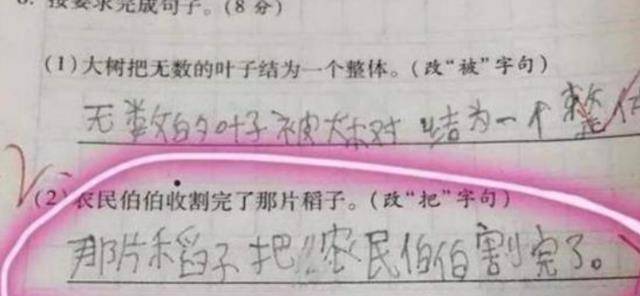 按要求完成句子。(8分)
(1)大树把无数的叶子结为一个整体。(改“被”字句)
无数的叶子被大树结为一个整体
(2)农民伯伯收割完了那片稻子。(改“把”字句)
那片稻子把农民伯伯割完了。